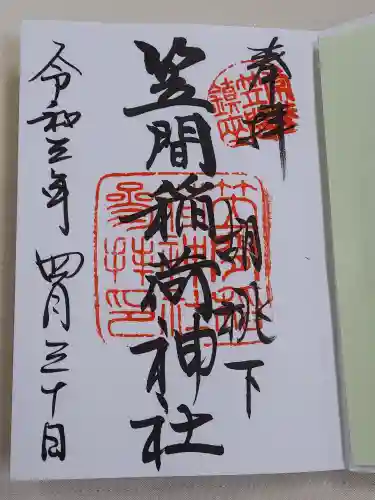 奉拝
胡桃下
笠間稲荷神社
令和三年四月三十日